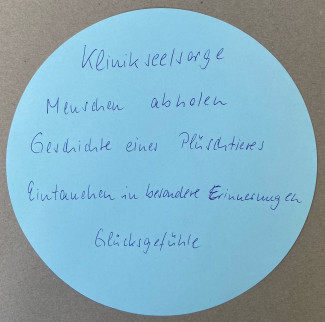 Klinikseelsorge
Menschen abholen
Geschichte eines Plüschtieres
Eintauchen in besondere Erinnerungen
Glücksgefühle